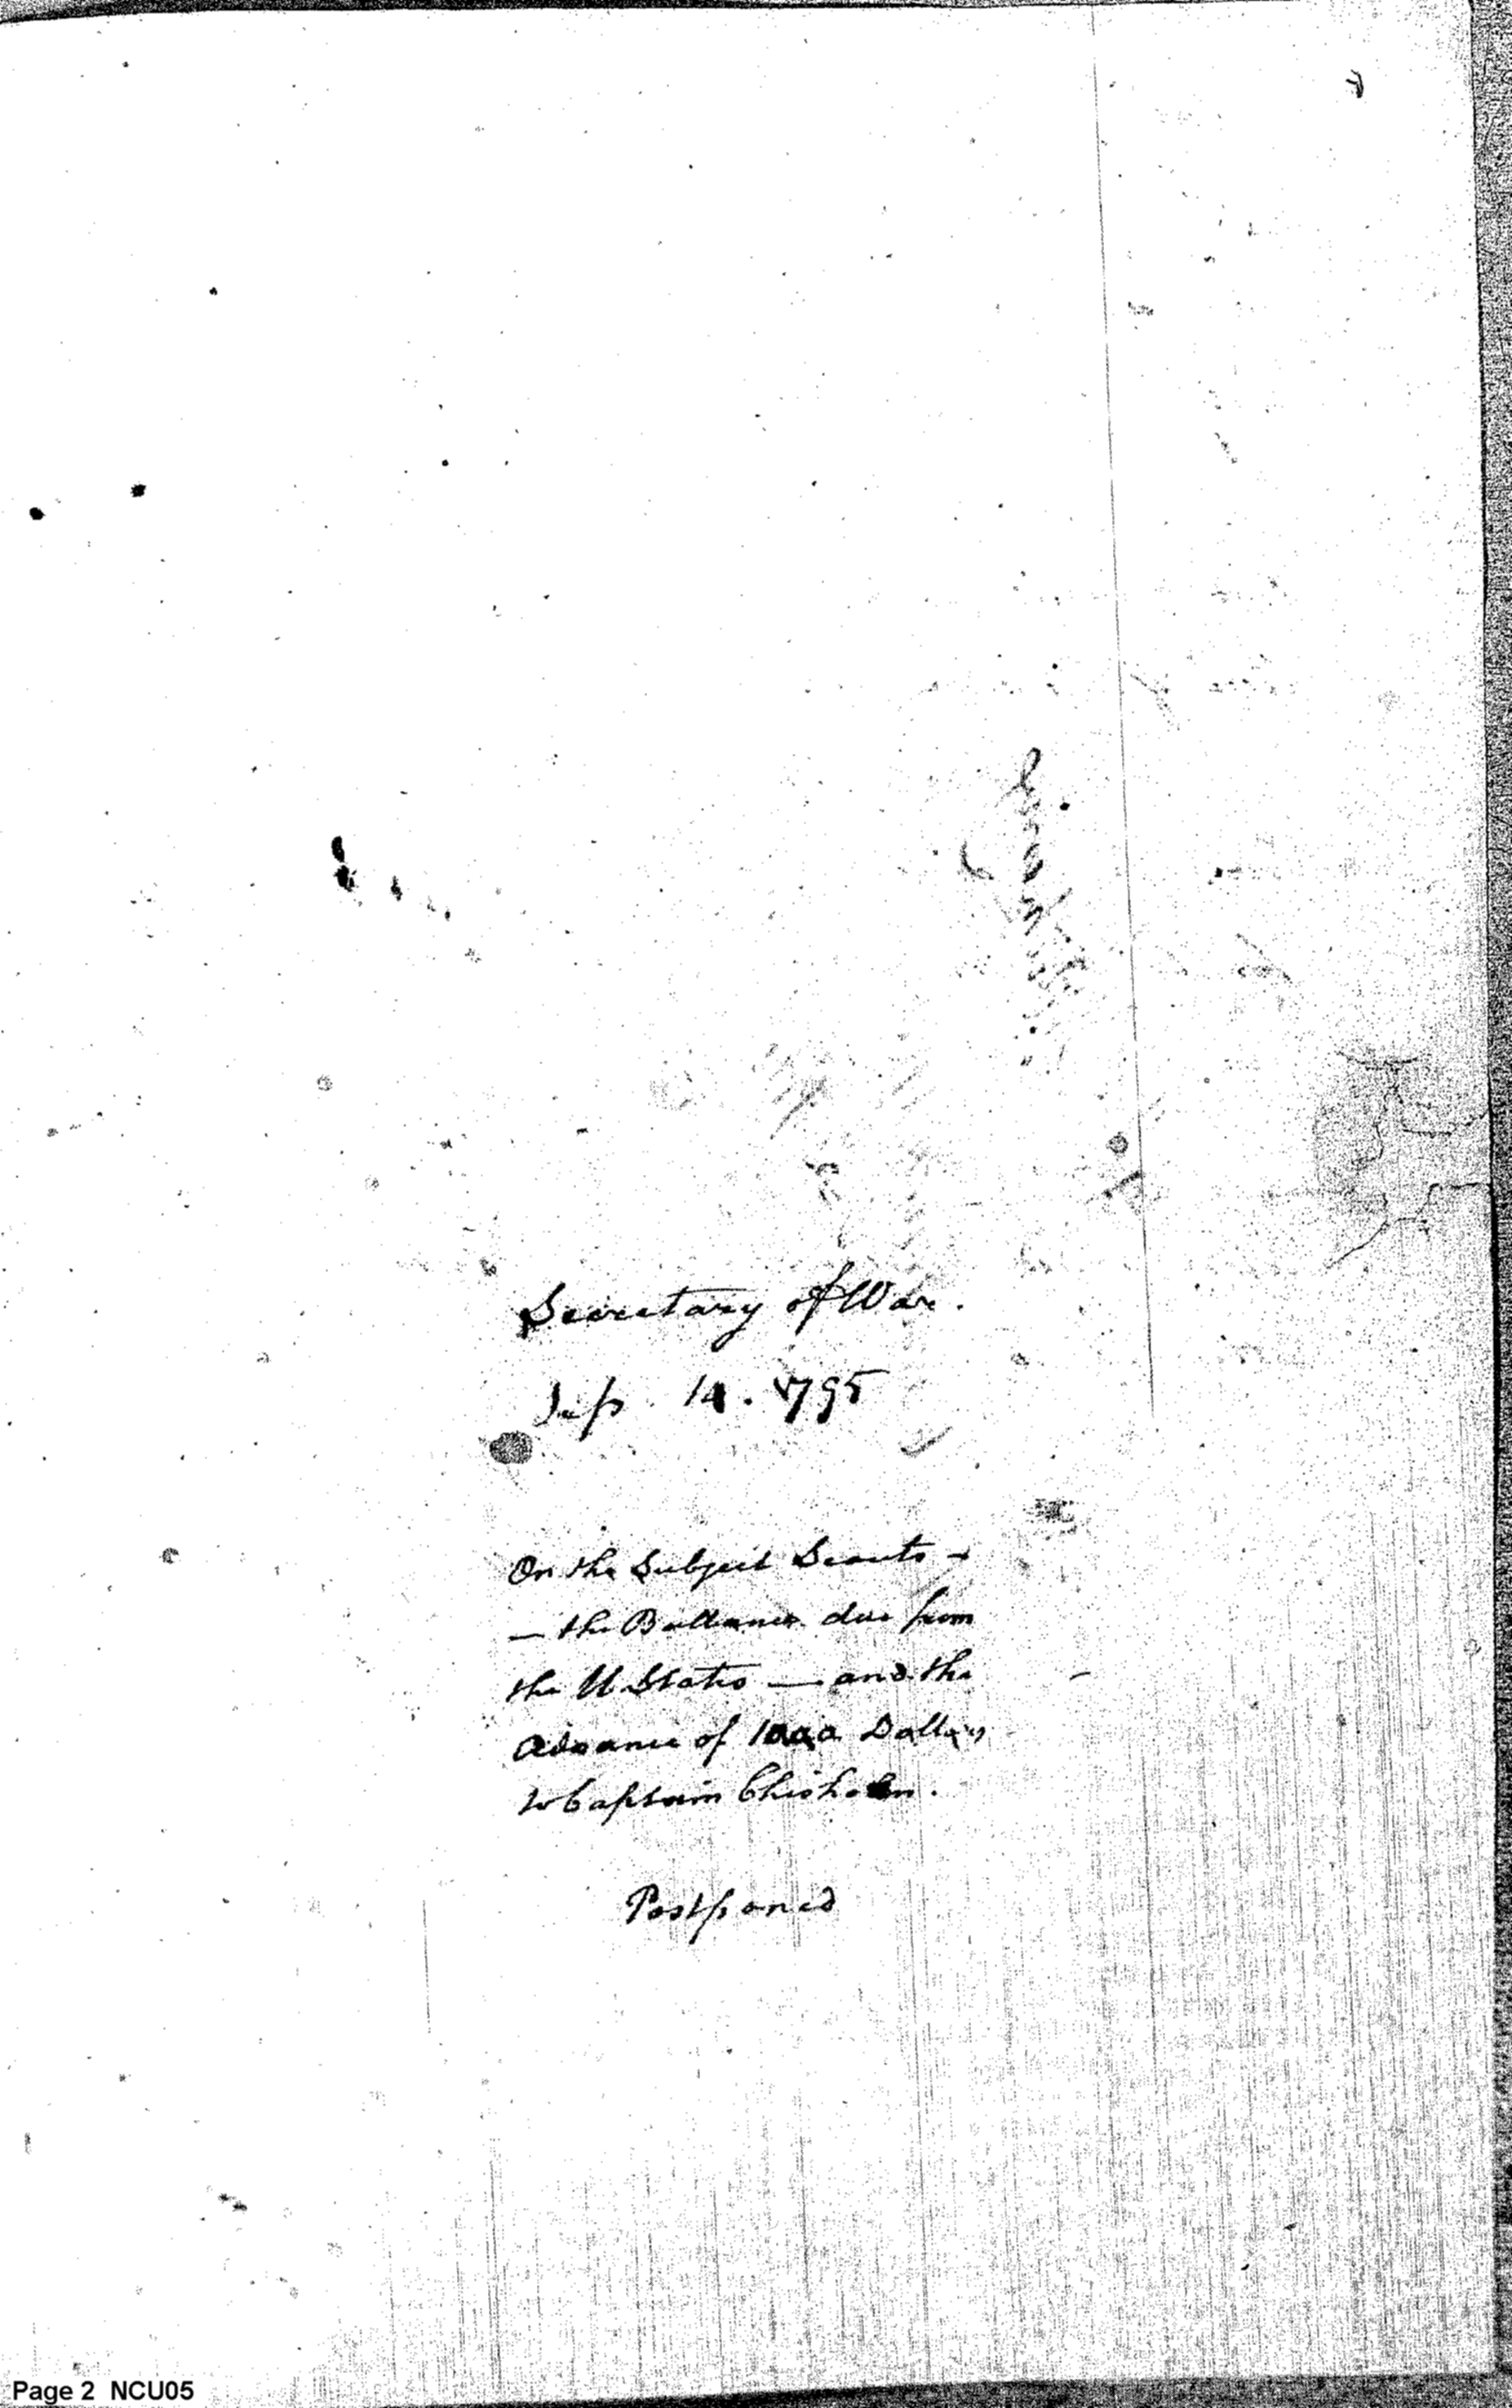 Secretary of War.
Sep. 14. 1795
On the Subject Scouts —
— the Ballance due from
the U States — and the
Advance of 1000 Dollars
to Captain Chisholm.
Postponed
Page 2 NCU05